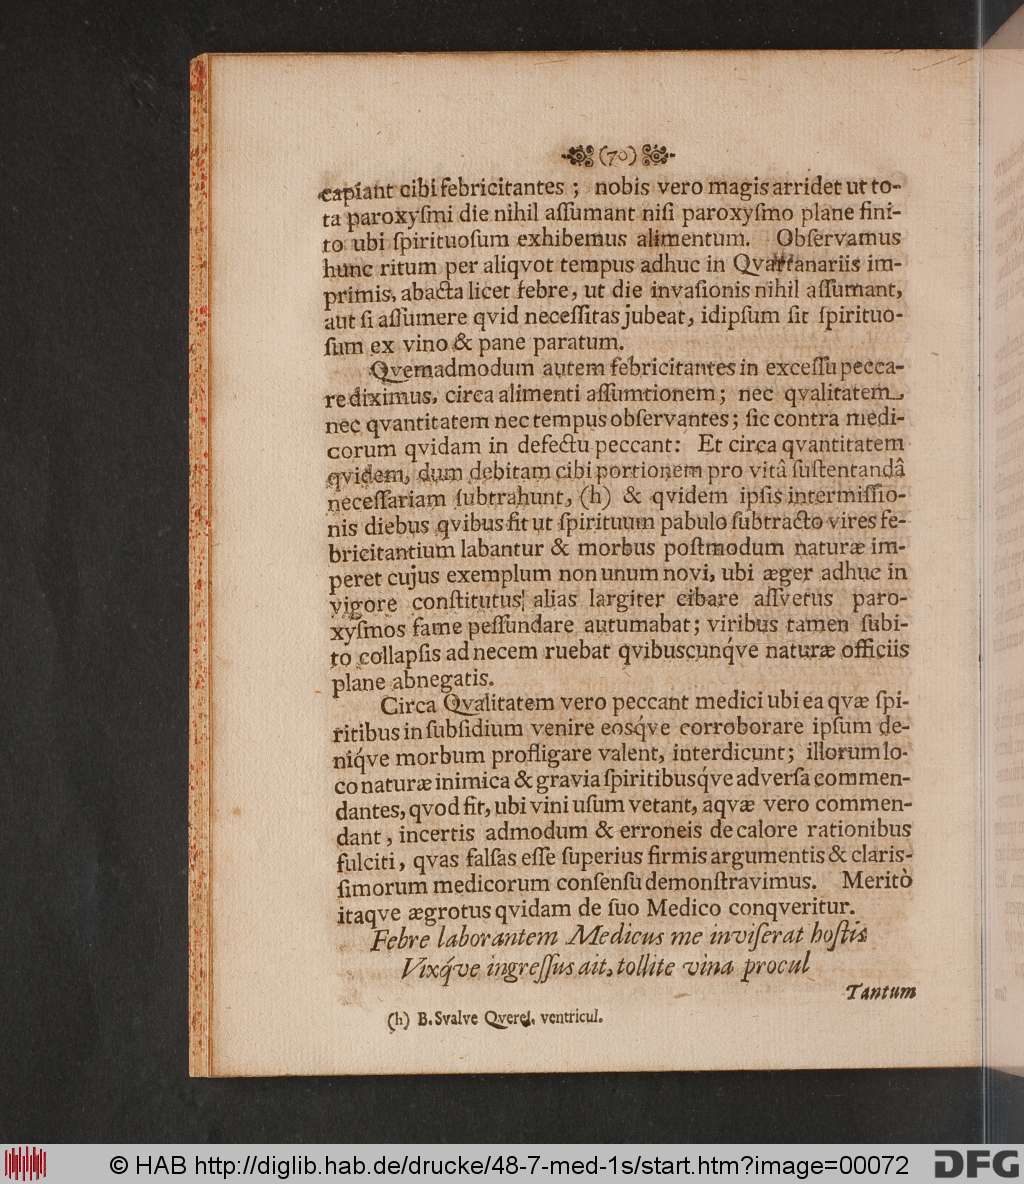 (70)
capiant cibi febricitantes ; nobis vero magis arridet ut to-
ta paroxyſmi die nihil aſſumant niſi paroxyſmo plane fini-
to ubi ſpirituoſum exhibemus alimentum. Obſervamus
hunc ritum per aliqvot tempus adhuc in Qvartanariis im-
primis, abacta licet febre, ut die invaſionis nihil aſſumant,
aut ſi aſſumere qvid neceſſitas jubeat, idipſum ſit ſpirituo-
ſum ex vino & pane paratum.
Qvemadmodum autem febricitantes in exceſſu pecca-
re diximus, circa alimenti aſſumtionem ; nec qvalitatem,
nec qvantitatem nec tempus obſervantes ; ſic contra medi-
corum qvidam in defectu peccant: Et circa qvantitatem
qvidem, dum debitam cibi portionem pro vitâ ſuſtentandâ
neceſſariam ſubtrahunt, (h) & qvidem ipſis intermiſſio-
nis diebus qvibus fit ut ſpirituum pabulo ſubtracto vires fe-
bricitantium labantur & morbus poſtmodum naturæ im-
peret cujus exemplum non unum novi, ubi æger adhuc in
vigore conſtitutus, alias largiter cibare aſſvetus paro-
xyſmos fame peſſundare autumabat ; viribus tamen ſubi-
to collapſis ad necem ruebat qvibuscunq́ve naturæ officiis
plane abnegatis.
Circa Qvalitatem vero peccant medici ubi ea qvæ ſpi-
ritibus in ſubſidium venire eosq́ve corroborare ipſum de-
niq́ve morbum profligare valent, interdicunt ; illorum lo-
co naturæ inimica & gravia ſpiritibusq́ve adverſa commen-
dantes, qvod fit, ubi vini uſum vetant, aqvæ vero commen-
dant, incertis admodum & erroneis de calore rationibus
fulciti, qvas falſas eſſe ſuperius firmis argumentis & claris-
ſimorum medicorum conſenſu demonſtravimus. Meritò
itaqve ægrotus qvidam de ſuo Medico conqveritur.
Febre laborantem Medicus me inviſerat hoſtis
Vixq́ve ingreſſus ait, tollite vina procul
Tantum
(h) B. Svalve Qverel. ventricul.
© HAB http://diglib.hab.de/drucke/48-7-med-1s/start.htm?image=00072
DFG